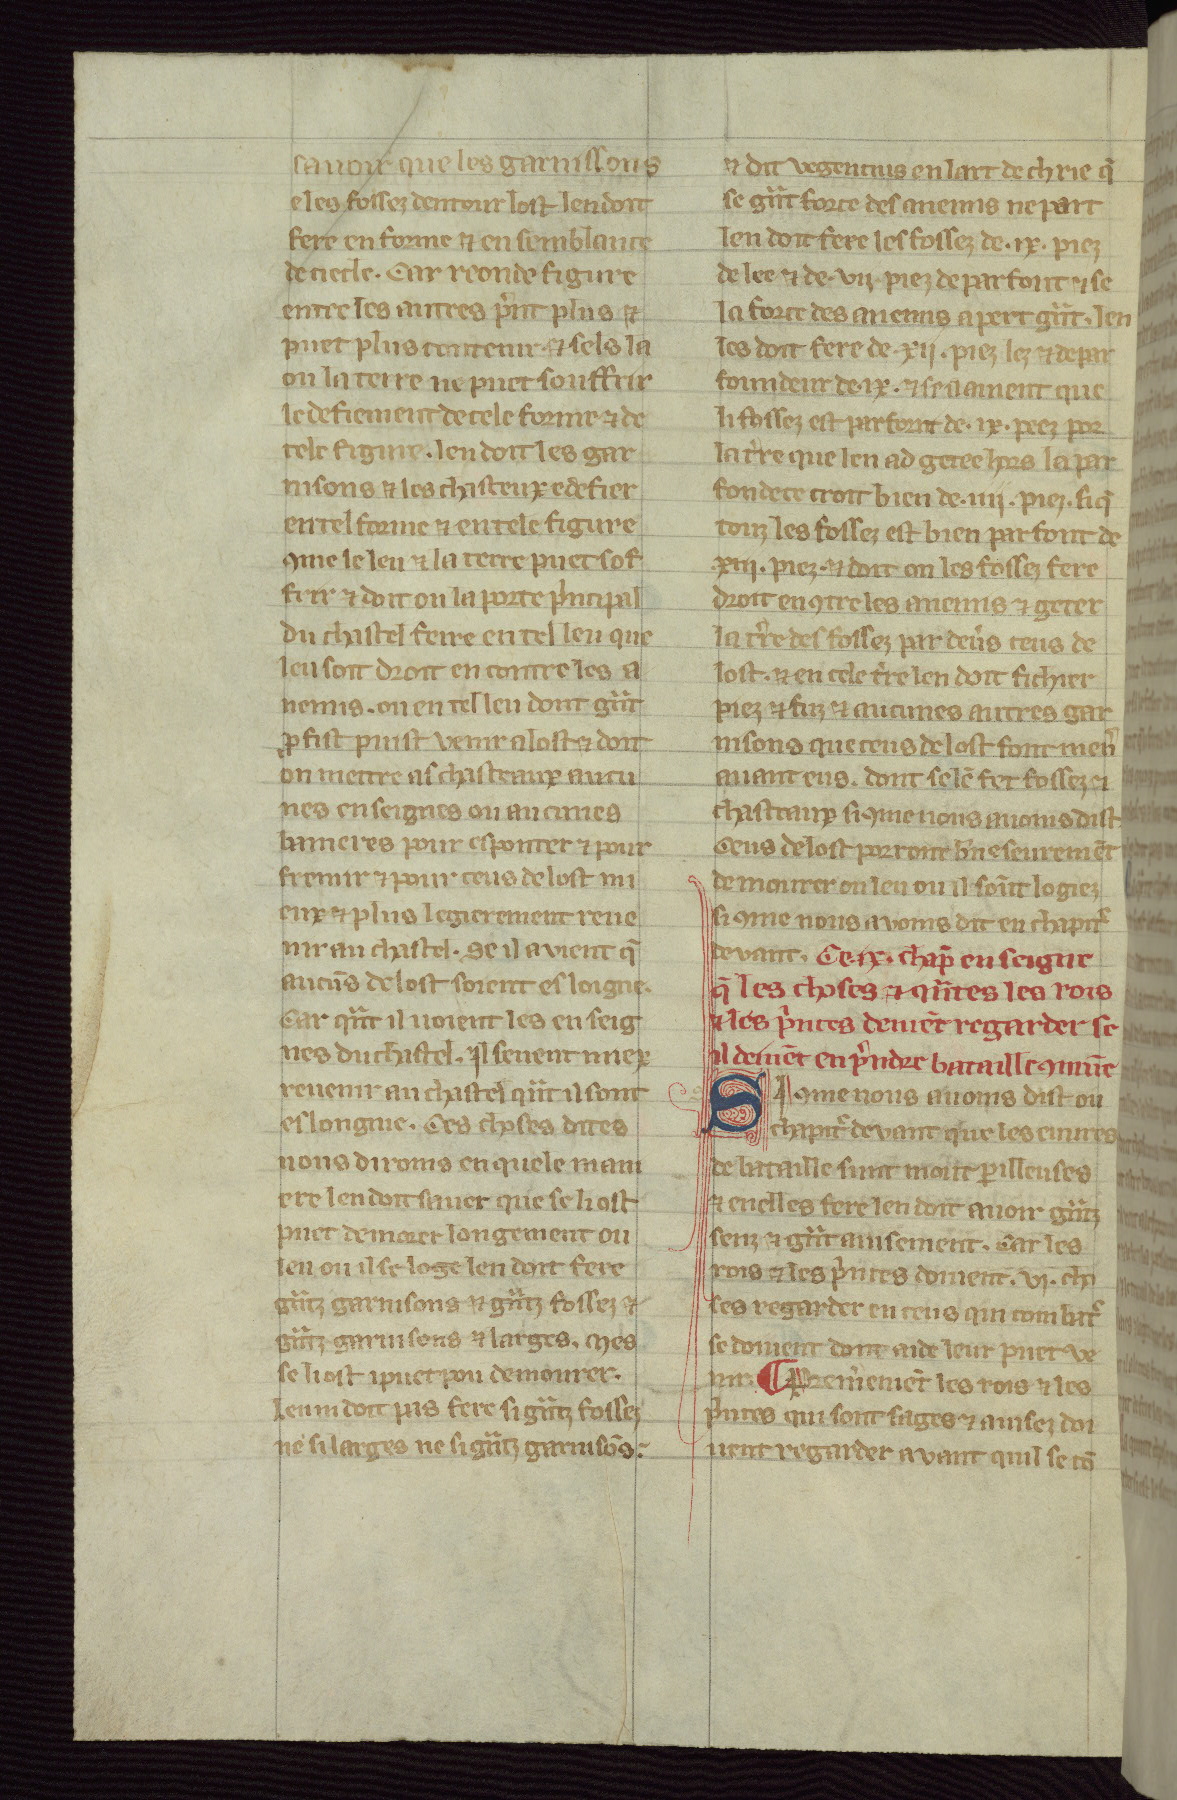 sauoir que les garnisons
e les fossez dentour lost len doit
fere en forme ⁊ en semblance
de cercle. Car reonde figure
entre les autres p̃nt plus ⁊
puet plus contenir. ⁊ se ls la
ou la terre ne puet souffrir
le defiement de cele forme ⁊ de
tele figure. len doit les gar
nisons ⁊ les chasteux edefier
en tel forme ⁊ en tele figure
9me le leu ⁊ la terre puet sof
frir ⁊ doit on la porte p̃ncipal
du chastel feire en tel leu que
leu soit droit en contre les a
nemis. ou en tel leu dont gñt
ꝓfist puist venir a lost ⁊ doit
on mettre as chasteaux aucu
nes enseignes ou aucunes
banieres pour espouter ⁊ pour
fremir ⁊ pour ceus de lost mi
eux ⁊ plus legierement reue
nir au chastel. Se il avient q̃
aucũs de lost soient esloigne.
Car qñt il uoient les enseig
nes du chastel. Il seuent miex
reuenir au chastel qñt il sont
eslongnie. Ces choses dites
nous dirons en quele mani
ere len doit sauer que se li ost
puet demorer longement ou
leu ou il se loge len doit fere
gñtz garnisons ⁊ gñtz fossez ⁊
gñtz garnisons ⁊ larges. Mes
se li ost i puet pou demourer.
len ni doit pas fere si gñtz fossez
ne si larges ne si gñtz garnisõs.
⁊ dit vegencius en lart de chrie q̃
se gñt force des anemis ne part
len doit fere les fossez de .ix. piez
de lee ⁊ de .vij. piez de parfont ⁊ se
la force des anemis apert gñt. len
les doit fere de .xij. piez lez ⁊ de par
foundeur de .ix. ⁊ se uament que
li fossez est parfont de .ix. peez por
la t̃re que len ad getee hors la par
fondece croit bien de .iiij. piez. si q̃
touz les fossez est bien parfont de
xiij. piez. ⁊ doit on les fossez fere
droit en 9tre les anemis ⁊ geter
la t̃re des fossez par deũs ceus de
lost. ⁊ en cele t̃re len doit fichier
piez ⁊ fuz ⁊ aucunes autres gar
nisons que ceus de lost font men̾
auant eus. dont se lẽ fet fossez ⁊
chasteaux si 9me nous auons dist
Ceus de lost porront bñ ⁊ seuremẽt
demourer ou leu ou il sõnt logiez
si 9me nous avons dit en chapit̾
devant. Ce .ix. chap̃ enseigne
q̃ les choses ⁊ qñtes les rois
⁊ les p̃nces deiuẽt regarder se
il deiuẽt enp̃ndre bataille 9mũe
SI 9me nous auons dist ou
chapit̾ devant que les euures
de bataille sunt mout ꝑilleuses
⁊ en elles fere len doit auoir gñtz
senz ⁊ gñt auisement. Car les
rois ⁊ les p̃nces doiuent .vi. cho
ses regarder en ceus qui combat̾
se doiuent dont aide leur puet ve
nir. ¶ Prem̾emẽt les rois ⁊ les
p̃nces qui sont sages ⁊ auisez doi
uent regarder avant quil se cõ